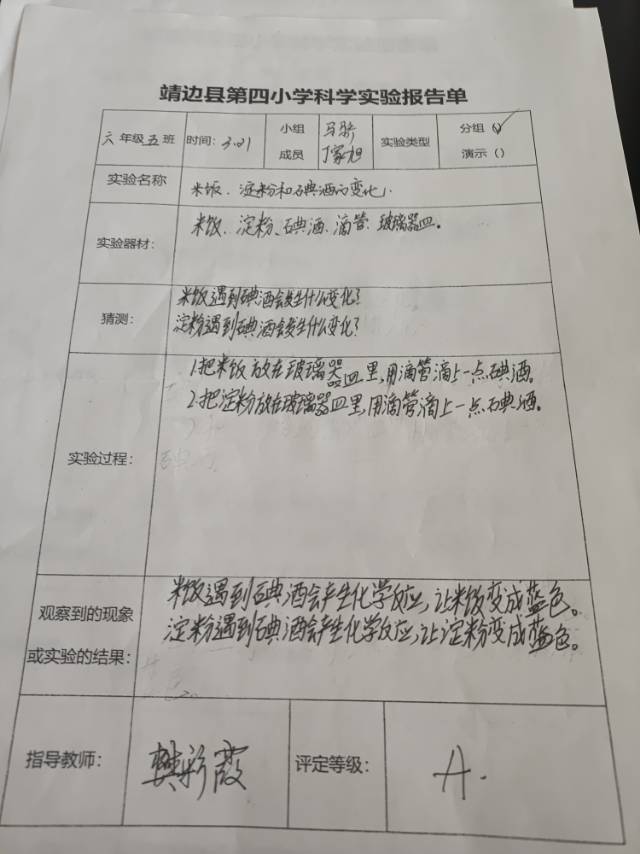 靖边县第四小学科学实验报告单
六年级五班 时间: 3.21 小组成员 马骄 丁家旭 实验类型 分组(✓) 演示()
实验名称 米饭、淀粉和碘酒的变化
实验器材: 米饭、淀粉、碘酒、滴管、玻璃器皿。
猜测: 米饭遇到碘酒会发生什么变化?
淀粉遇到碘酒会发生什么变化?
实验过程: 1.把米饭放在玻璃器皿里,用滴管滴上一点碘酒。
2.把淀粉放在玻璃器皿里,用滴管滴上一点碘酒。
观察到的现象或实验的结果: 米饭遇到碘酒会产生化学反应,让米饭变成蓝色。
淀粉遇到碘酒会产生化学反应,让淀粉变成蓝色。
指导教师: 樊彩霞 评定等级: A.